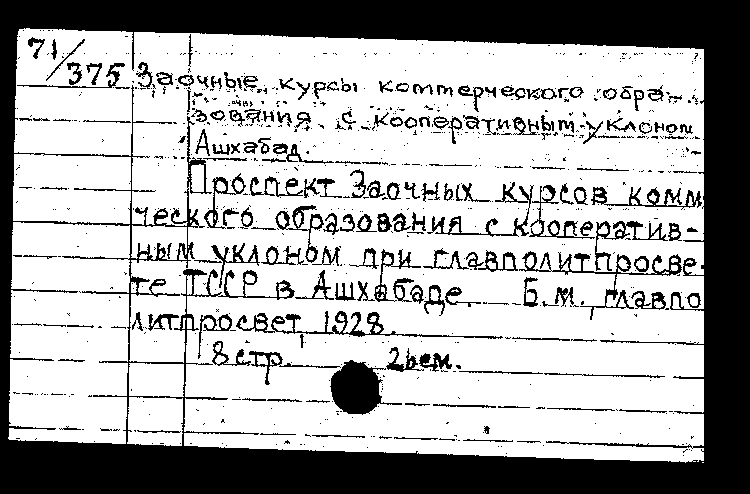 71/375 Заочные курсы коммерческого обра-
зования с кооперативным уклоном
Ашхабад.
Проспект Заочных курсов комм
ческого образования с кооператив-
ным уклоном при главполитпросве-
те ТССР в Ашхабаде. Б.м., главпо
литпросвет, 1928.
8 стр. 2